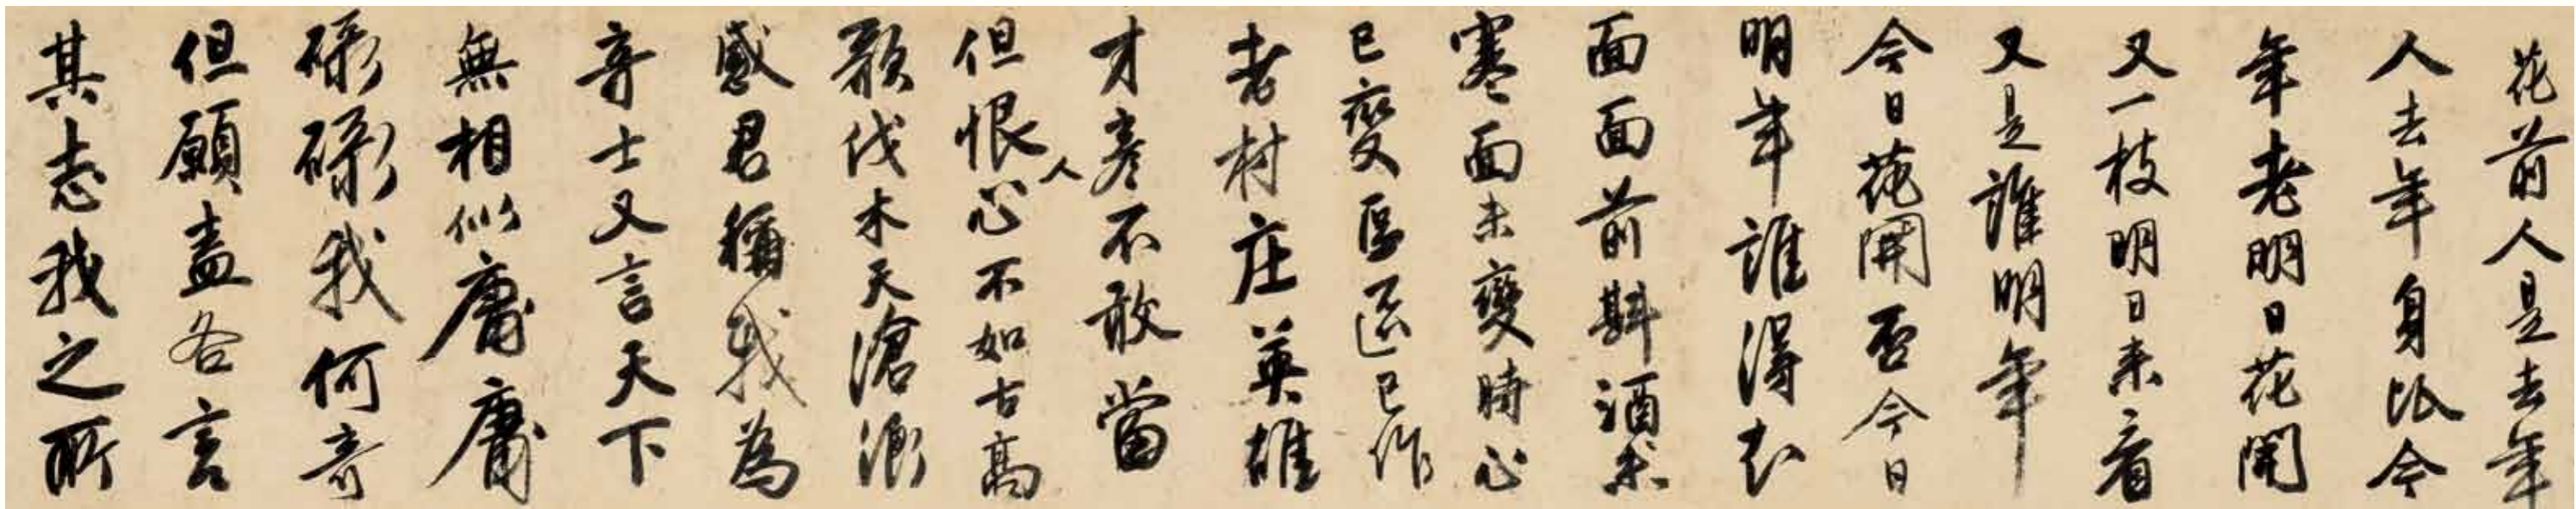 花前人是去年
人去年身比今
年老明日花開
又一枝明日來看
又是誰明年
今日花開否今日
明年誰得知
面面前斟酒未
寒面未變時心
已變區區已作
老村庄英雄
才彥不敢當
但恨人心不如古高
歌伐木天滄浪
感君稱我為
奇士又言天下
無相似庸庸
碌碌我何奇
但願盍各言
其志我之所